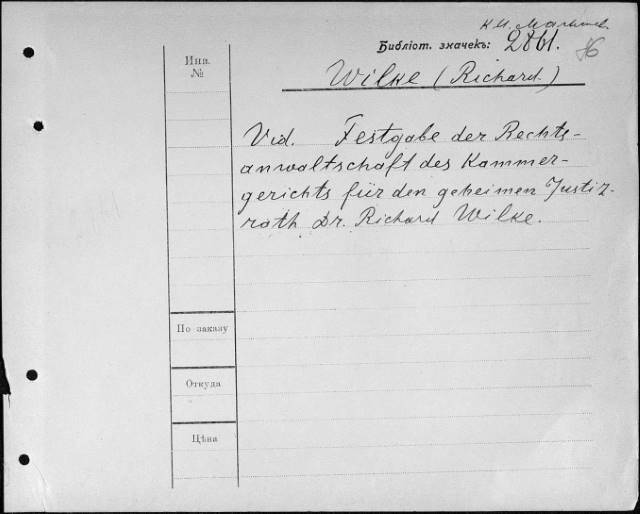 К.И. Малышев.
Библіот. значекъ: 2861.
Инв.
№
Wilke (Richard.)
Vid. Festgabe der Rechts-
anwaltschaft des Kammer-
gerichts für den geheimen Justiz-
rath Dr. Richard Wilke.
По заказу
Откуда
Цѣна